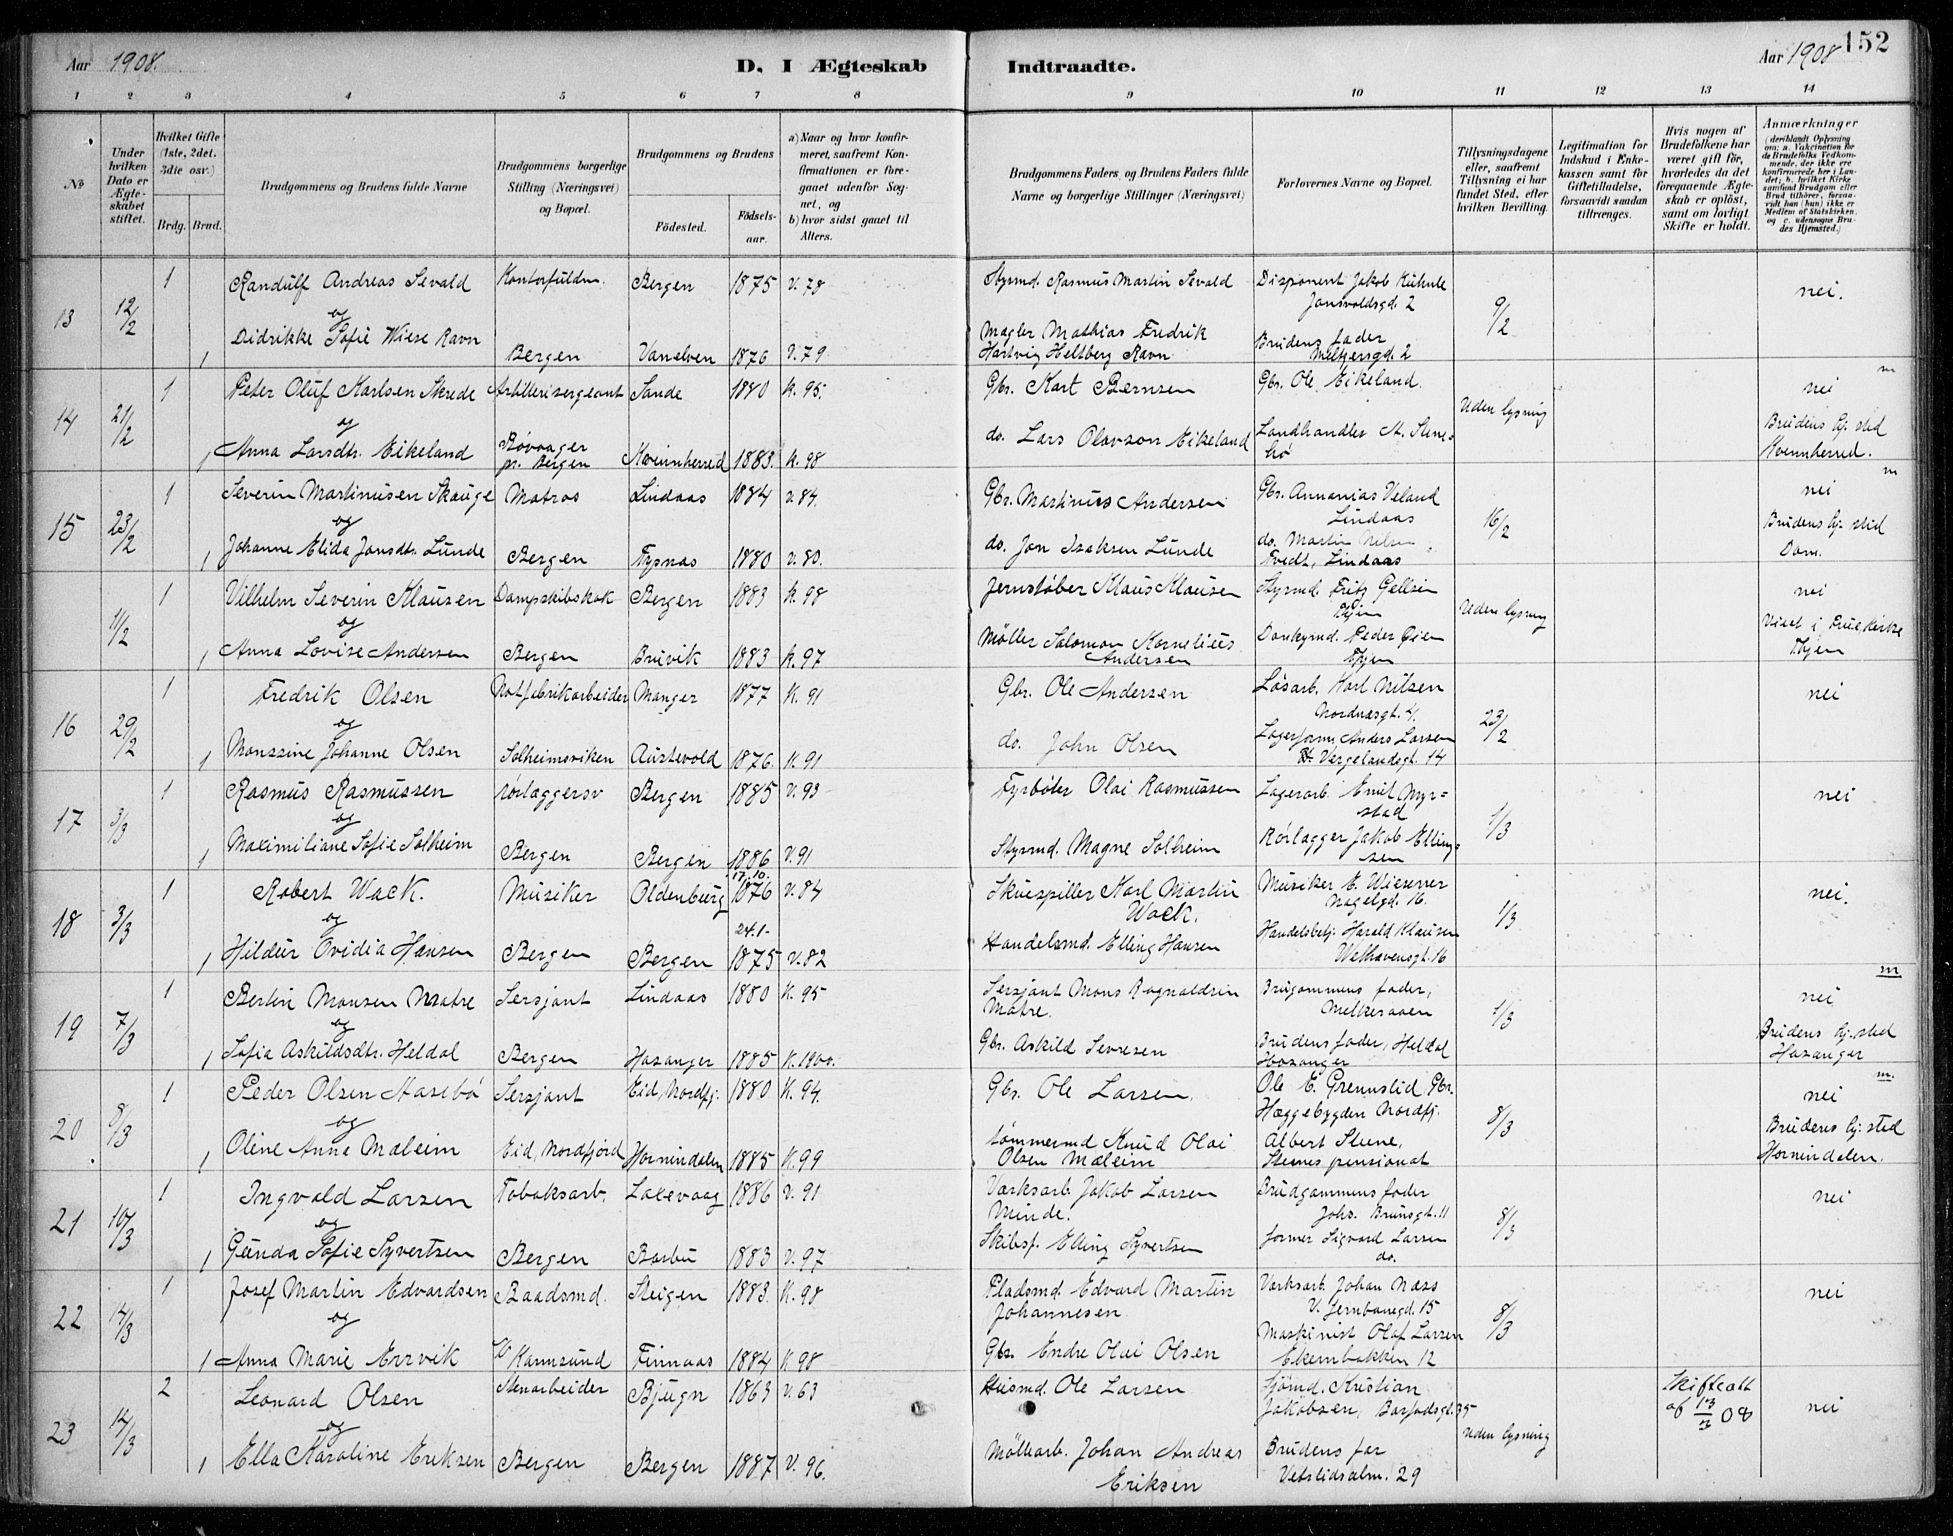 Aar 1908.
D. I Ægteskab Indtraadte.
Aar 1908 152
1 2 3 4 5 6 7 8 9 10 11 12 13 14
No
Under hvilken Dato er Ægteskabet stiftet.
Hvilket Gifte (1ste, 2det. 3die osv.)
Brdg. Brud.
Brudgommens og Brudens fulde Navne
Brudgommens borgerlige Stilling (Næringsvei) og Bopæl.
Brudgommens og Brudens
Fødested. Fødsels-aar.
a) Naar og hvor konfirmeret, saafremt Konfirmationen er foregaaet udenfor Sognet, og
b) hvor sidst gaaet til Alters.
Brudgommens Faders, og Brudens Faders fulde Navne og borgerlige Stillinger (Næringsvei)
Forlovernes Navne og Bopæl.
Tillysningsdagene eller, saafremt Tillysning ei har fundet Sted, efter hvilken Bevilling.
Legitimation for Indskud i Enkekassen samt for Giftetilladelse, forsaavidt saadan tiltrænges.
Hvis nogen af Brudefolkene har været gift før, hvorledes da det foregaaende Ægteskab er opløst, samt om lovligt Skifte er holdt.
Anmærkninger (deriblandt Oplysning om: a. Vaccination for de Brudefolks Vedkommende, der ikke ere konfirmerede her i Landet; b. hvilket Kirkesamfund Brudgom eller Brud tilhører, forsaavidt han (hun) ikke er Medlem af Statskirken, og c. udensogns Brudes Hjemsted.)
1 Randulf Andreas Sevald Kontorfuldm. Bergen 1875 v. 78 Styrmd. Rasmus Martin Sevald Disponent Jakob
2 nei.
13 12/2 og 9/2
1 Didrikke Sofie Wiese Ravn Bergen Vanelven 1876 v. 79 Mægler Mathias Fredrik Brudens fader
Hartvig Heltberg Ravn
1 Peter Oluf Karlsen Skrede Artillerisergeant Sande 1880 k. 95. Gbr. Karl Bernsen Gbr. Ole Eikeland. nei m
14 21/2 og Uden lysning
1 Anna Larsdtr. Eikeland pr. Bergen Kvinnherred 1883. k. 98 do. Lars Olavson Eikeland Landhandler A. Stenebø Brudens hj. sted Kvennherred.
1 Severin Martinusen Skauge Matros Lindaas 1884 v. 84. Gbr. Martinus Andersen Gbr. Annanias Veland Lindaas nei m
15 23/2 og 16/2
1 Johanne Elida Jonsdtr. Lunde Bergen Tysnæs 1880 v. 80. do. Jon Isaksen Lunde do. Martin Nilsen Tvedt, Lindaas Brudens hj. sted Dom.
1 Vilhelm Severin Klausen Dampskibskok Bergen 1883 k. 98 Jernstøber Klaus Klausen Styrmd. Fritz nei
11/2 og Uden lysning
1 Anna Lovise Andersen Bergen Bruvik 1883 k. 97 Møller Salomon Kornelius Andersen Donkymd. Peder Øien Viet i Fruekirke
1 Fredrik Olsen Notfabrikarbeider Manger 1877 k. 91 Gbr. Ole Andersen Løsarb. Karl Nilsen Nordnæsgt. 4. nei
16 29/2 og 23/2
1 Monssine Johanne Olsen Solheimsviken Austevold 1876. k. 91 do. John Olsen Lagerform. Anders Larsen Vergelandsgt. 14
1 Rasmus Rasmussen rørlæggersv Bergen 1885 v. 93 Fyrbøter Olai Rasmussen Lagerarb. Emil Myrstad nei
17 3/3 og 1/3
1 Maximiliane Sofie Solheim Bergen Bergen 1886 v. 91 Styrmd. Magne Solheim Rørlægger Jakob Ellingsen
17.10.
1 Robert Wack. Musiker Oldenburg 1876 v. 84 Skuespiller Karl Martin Wack. Musiker E. Wiesener Nagelgd. 16. nei.
18 3/3 og 24.1- 1/3
1 Hildur Ovidia Hansen Bergen Bergen 1875 v. 82 Handelsmd. Elling Hansen Handelsbetj. Harald Klausen Welhavensgt. 16
1 Bertin Monsen Matre Sersjant Lindaas 1880 k. 95 Sersjant Mons Ragnaldsen Matre. Brugommens fader, nei m
19 7/3 og 1/3
1 Sofia Askildsdtr. Heldal Bergen Hosanger 1885 k. 1900. Gbr. Askild Seversen Brudens fader, Heldal Hosanger Brudens hj. sted Hosanger
1 Peder Olsen Aasebø Sersjant Eid, Nordfj. 1880 k. 94. Gbr. Ole Larsen. Ole E. Grennslid Gbr. Hæggebygden Nordfj. nei m.
20 8/3 og 8/3
1 Oline Anna Maleim Eid, Nordfjord Hornindalen 1885 k. 99 tømmermd Knud Olai Olsen Mæleim Albert Stene, Stenes pensionat Brudens hj. sted Hornindalen.
1 Ingvald Larsen Tobaksarb. Laxevaag 1886 v. 91 Værksarb. Jakob Larsen Minde. Brudgammens fader Johs. Brunsgt. 11 nei
21 10/3 og 8/3
1 Gunda Sofie Syvertsen Bergen Barbu 1883 v. 97 Skibsf. Elling Syvertsen former Sigvard Larsen do.
1 Josef Martin Edvardsen Baadsmd. Steigen 1883. k. 98 Pladsmd. Edvard Martin Johannesen Værksarb. Johan Næss V. Jernbanegd. 15 nei
22 14/3 og 8/3
1 Anna Marie Ervik Karmsund Finnaas 1884 k. 98 Gbr. Endre Olai Olsen Maskinist Olaf Larsen Ekernbakken 12
2 Leonard Olsen Stenarbeider Bjugn 1863 v. 63 Husmd. Ole Larsen Sjømd. Kristian Jakobsen, 35 Skifteatt af 13/3 08 nei
23 14/3 og Uden lysning
1 Ella Karoline Eriksen Bergen Bergen 1887 v. 96. Møllearb. Johan Andreas Eriksen Brudens far Vetslidsalm. 29